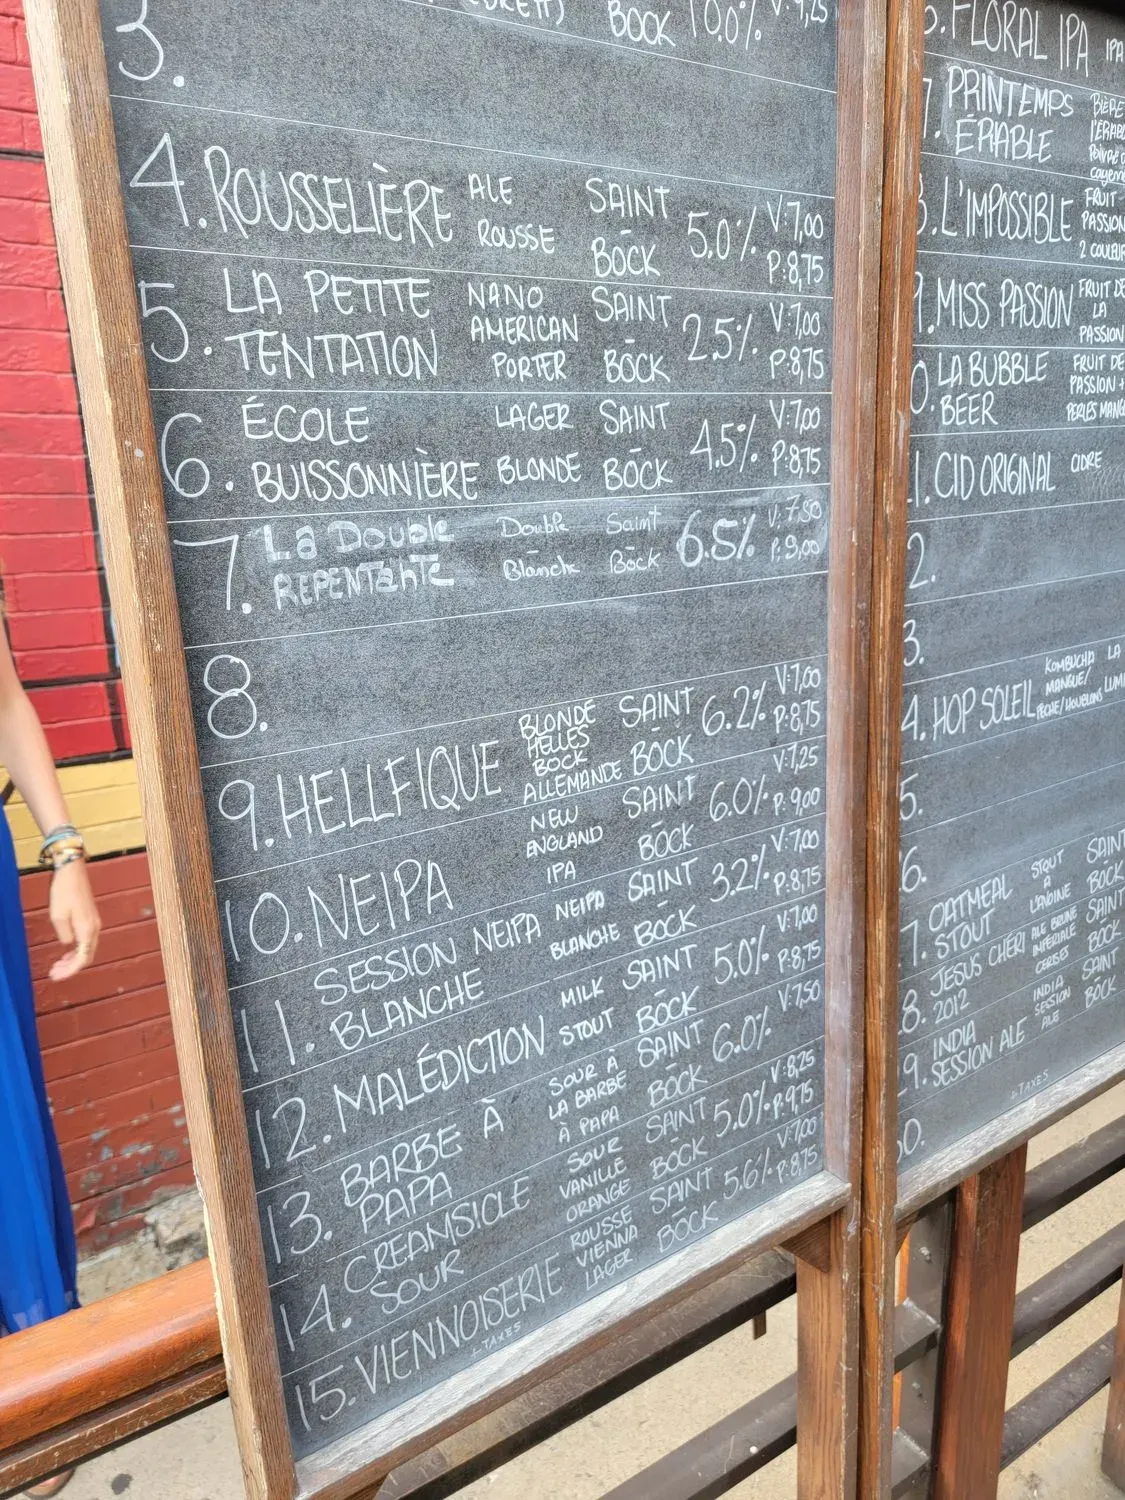 BOCK 10.0%
3.
4. ROUSSELIÈRE ALE ROUSSE SAINT - BOCK 5.0% V:7,00 P:8,75
5. LA PETITE TENTATION NANO AMERICAN PORTER SAINT - BOCK 2.5% V:7,00 P:8,75
6. ÉCOLE BUISSONNIÈRE LAGER BLONDE SAINT - BOCK 4.5% V:7,00 P:8,75
7. La Double REPENTANTE Double - Blanche Saint - Bock 6.5% V:7,50 P:9,00
8.
9. HELLFIQUE BLONDE HELLES BOCK ALLEMANDE SAINT - BOCK 6.2% V:7,00 P:8,75
10. NEIPA NEW ENGLAND IPA SAINT - BOCK 6.0% V:7,25 P:9,00
11. SESSION NEIPA BLANCHE NEIPA BLANCHE SAINT - BOCK 3.2% V:7,00 P:8,75
12. MALÉDICTION MILK STOUT SAINT - BOCK 5.0% V:7,00 P:8,75
13. BARBE À PAPA SOUR À LA BARBE À PAPA SAINT - BOCK 6.0% V:7,50
14. CREAMSICLE SOUR SOUR VANILLE ORANGE SAINT - BOCK 5.0% V:8,25 P:9,75
15. VIENNOISERIE ROUSSE VIENNA LAGER SAINT - BOCK 5.6% V:7,00 P:8,75
+TAXES
FLORAL IPA IPA
7. PRINTEMPS ÉRABLE BIÈRE
L'IMPOSSIBLE FRUIT PASSION 2 COULEUR
9. MISS PASSION FRUIT DE LA PASSION
0. LA BUBBLE BEER FRUIT DE PASSION +
1. CID ORIGINAL CIDRE
2.
3.
4. HOP SOLEIL KOMBUCHA MANGUE/ PÊCHE/HOUBLONS LA
5.
6.
7. OATMEAL STOUT STOUT À L'AVOINE SAINT BOCK
8. JÉSUS CHÉRI 2012 ALE BRUNE IMPÉRIALE CERISES SAINT BOCK
9. INDIA SESSION ALE INDIA SESSION ALE SAINT BOCK
0.
+TAXES